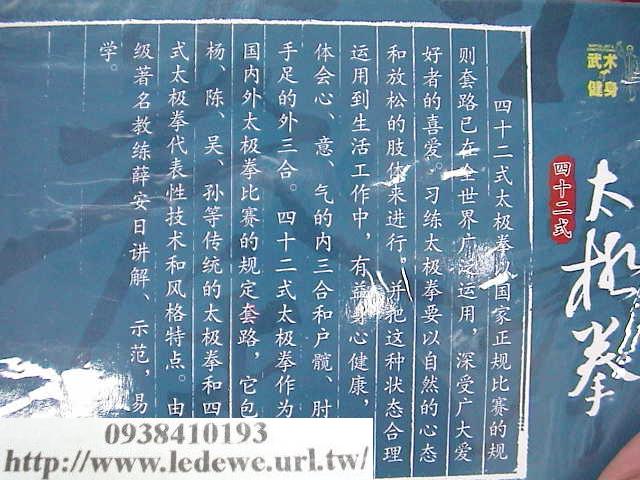 武术
健身
四十二式
太极拳
四十二式太极拳以国家正规比赛的规
则套路已在全世界广泛运用，深受广大爱
好者的喜爱。习练太极拳要以自然的心态
和放松的肢体来进行。并把这种状态合理
运用到生活工作中，有益身心健康，
体会心、意、气的内三合和户髋、肘
手足的外三合。四十二式太极拳作为
国内外太极拳比赛的规定套路，它包
杨、陈、吴、孙等传统的太极拳和四
式太极拳代表性技术和风格特点。由
级著名教练薛安日讲解、示范，易
学。
0938410193
http://www.ledewe.url.tw/